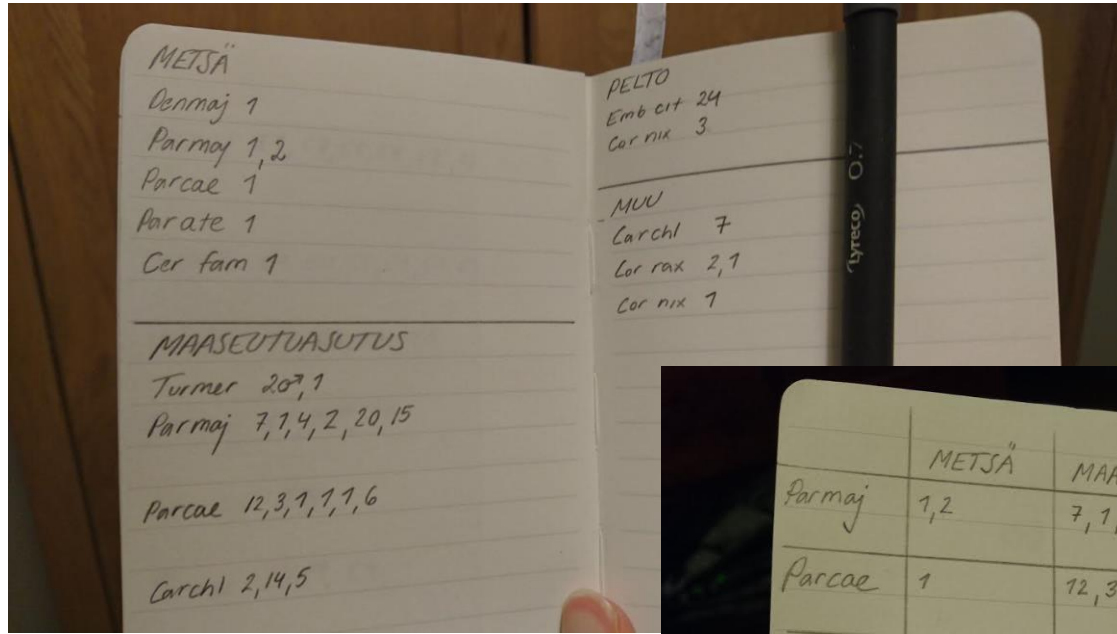 METSÄ
Denmaj 1
Parmaj 1,2
Parcae 1
Parate 1
Cer fam 1
MAASEUTUASUTUS
Turmer 2♂,1
Parmaj 7,1,4,2,20,15
Parcae 12,3,1,1,1,6
Carchl 2,14,5
PELTO
Emb cit 24
Cor nix 3
MUU
Carchl 7
Cor rax 2,1
Cor nix 1
Lyreco 0.7
METSÄ MAA
Parmaj 1,2 7,1,
Parcae 1 12,3